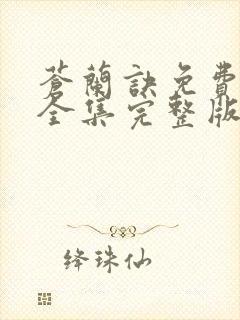 蒼蘭訣免費
全集完整版
绛珠仙